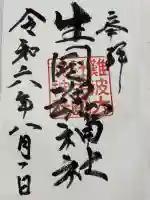 奉拝
難波大
生國魂神社
令和六年八月一日